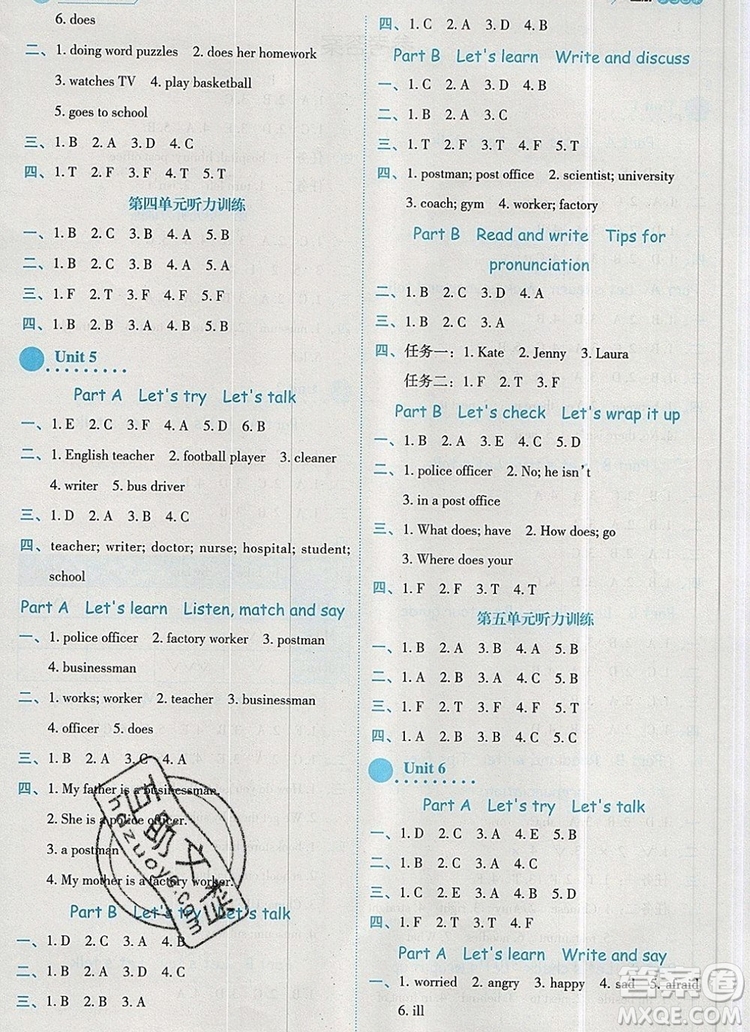 6. does
二、1. doing word puzzles 2. does her homework
3. watches TV 4. play basketball
5. goes to school
三、1. B 2. A 3. D 4. C
四、1. T 2. F 3. F 4. F 5. T
第四单元听力训练
一、1. B 2. C 3. B 4. A 5. B
二、1. C 2. B 3. B 4. A 5. A
三、1. F 2. F 3. T 4. F 5. T
四、1. B 2. B 3. A 4. B 5. A
Unit 5
Part A Let's try Let's talk
一、1. E 2. C 3. F 4. A 5. D 6. B
二、1. English teacher 2. football player 3. cleaner
4. writer 5. bus driver
三、1. D 2. A 3. B 4. C
四、teacher; writer; doctor; nurse; hospital; student;
school
Part A Let's learn Listen, match and say
一、1. police officer 2. factory worker 3. postman
4. businessman
二、1. works; worker 2. teacher 3. businessman
4. officer 5. does
三、1. B 2. A 3. C 4. A
四、1. My father is a businessman.
2. She is a police officer.
3. a postman
4. My mother is a factory worker.
Part B Let's try Let's talk
一、1. D 2. C 3. A 4. B
四、1. C 2. B 3. A 4. B
Part B Let's learn Write and discuss
一、1. C 2. A 3. B 4. D
二、1. B 2. A 3. C
三、1. T 2. F 3. T 4. F 5. T
四、1. postman; post office 2. scientist; university
3. coach; gym 4. worker; factory
Part B Read and write Tips for
pronunciation
二、1. B 2. C 3. D 4. A
三、1. B 2. C 3. A
四、任务一：1. Kate 2. Jenny 3. Laura
任务二：1. F 2. T 3. F
Part B Let's check Let's wrap it up
一、1. B 2. A 3. E 4. C 5. D
二、1. police officer 2. No; he isn't
3. in a post office
三、1. What does; have 2. How does; go
3. Where does your
四、1. F 2. F 3. T 4. T
第五单元听力训练
一、1. B 2. A 3. B 4. A 5. B
二、1. B 2. C 3. B 4. C 5. A
三、1. F 2. T 3. F 4. T 5. T
四、1. A 2. B 3. C 4. B 5. C
Unit 6
Part A Let's try Let's talk
一、1. D 2. C 3. A 4. E 5. B
二、1. C 2. E 3. B 4. A 5. D
三、1. B 2. C 3. A
四、1. F 2. T 3. T 4. F
Part A Let's learn Write and say
一、1. worried 2. angry 3. happy 4. sad 5. afraid
6. ill
互助文档
hdzuoye.com
答案圈
MXQE.COM